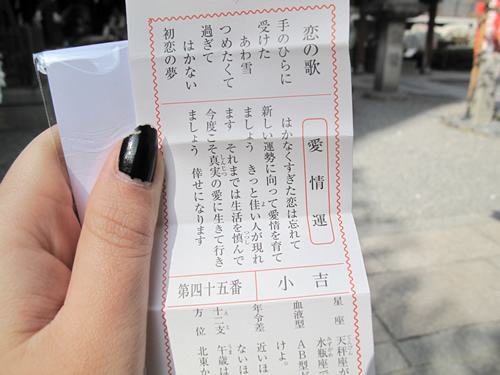 恋の歌
手のひらに
受けた
あわ雪
つめたくて
過ぎて
はかない
初恋の夢
愛情運
はかなくすぎた恋は忘れて
新しい運勢に向って愛情を育て
ましょう きっと佳い人が現れ
ます それまでは生活を慎んで
今度こそ真実の愛に生きて行き
ましょう 倖せになります
小吉
第四十五番
星座 天秤座が
水瓶座で
血液型 AB型が
けよ。
年令差 近いほ
ないほ
十二支 午歳は
方位 北東か